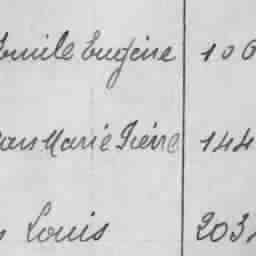 Emile Eugène 106
Jean Marie Pierre 144
Louis 203